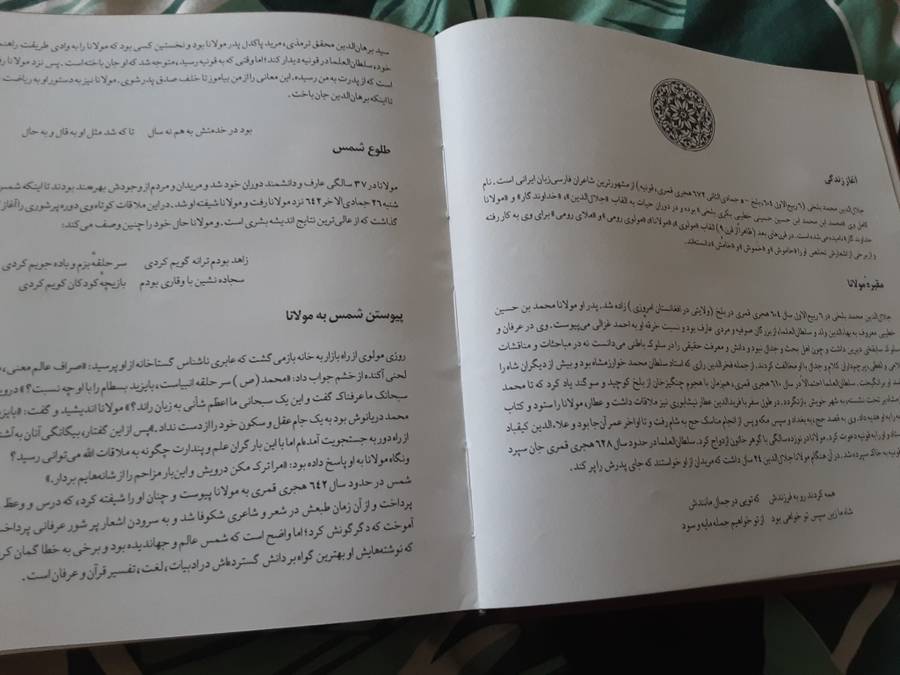 آغاز زندگی
جلال‌الدین محمد بلخی (۶ ربیع‌الاول ۶۰۴، بلخ - ۵ جمادی‌الثانی ۶۷۲ هجری قمری، قونیه) از مشهورترین شاعران فارسی‌زبان ایرانی است. نام
کامل وی «محمد ابن محمد ابن حسین حسینی خطیبی بکری بلخی» بوده و در دوران حیات به القاب «جلال‌الدین»، «خداوندگار» و «مولانا
خداوندگار» نامیده می‌شده است. در قرن‌های بعد (ظاهراً از قرن ۹) القاب «مولوی»، «مولانا»، «مولوی رومی» و «ملای رومی» برای وی به کار رفته
و از برخی از اشعارش تخلص او را «خاموش» و «خموش» و «خامش» دانسته‌اند.
مقبره مولانا
جلال‌الدین محمد بلخی در ۶ ربیع‌الاول سال ۶۰۴ هجری قمری در بلخ (ولایتی در افغانستان امروزی) زاده شد. پدر او مولانا محمد بن حسین
خطیبی معروف به بهاءالدین ولد و سلطان‌العلما، از بزرگان صوفیه و مردی عارف بود و نسبت خرقه او به احمد غزالی می‌پیوست. وی در عرفان و
سلوک سابقه‌ای دیرین داشت و چون اهل بحث و جدال نبود و دانش و معرفت حقیقی را در سلوک باطنی می‌دانست نه در مباحثات و مناقشات
لامی و لفظی، پرچم‌داران کلام و جدال با او مخالفت کردند. از جمله فخرالدین رازی که استاد سلطان محمد خوارزمشاه بود و بیش از دیگران شاه را
ضد او برانگیخت. سلطان‌العلما احتمالاً در سال ۶۱۰ هجری قمری، هم‌زمان با هجوم چنگیزخان از بلخ کوچید و سوگند یاد کرد که تا محمد
تخت نشسته، به شهر خویش بازنگردد. در طول سفر با فریدالدین عطار نیشابوری نیز ملاقات داشت و عطار، مولانا را ستود و کتاب
به او هدیه داد. وی به قصد حج، به بغداد و سپس مکه و پس از انجام مناسک حج به شام رفت و تا اواخر عمر آن‌جا بود و علاءالدین کیقباد
و او را به قونیه دعوت کرد. مولانا در نوزده سالگی با گوهر خاتون ازدواج کرد. سلطان‌العلما در حدود سال ۶۲۸ هجری قمری جان سپرد
قونیه به خاک سپرده شد. در آن هنگام مولانا جلال‌الدین ۲۴ سال داشت که مریدان از او خواستند که جای پدرش را پر کند.
همه کردند رو به فرزندش    که تویی در جمال مانندش
شاه ما زین سپس تو خواهی بود    از تو خواهیم جمله مایه و سود
سید برهان‌الدین محقق ترمذی، مرید پاکدل پدر مولانا بود و نخستین کسی بود که مولانا را به وادی طریقت راهنم
خود، سلطان‌العلما در قونیه دیدار کند؛ اما وقتی که به قونیه رسید، متوجه شد که او جان باخته است. پس نزد مولانا رف
است که از پدرت به من رسیده. این معانی را از من بیاموز تا خلف صدق پدر شوی. مولانا نیز به دستور او به ریاضت
تا اینکه برهان‌الدین جان باخت.
بود در خدمتش به هم نه سال    تا که شد مثل او به قال و به حال
طلوع شمس
مولانا در ۳۷ سالگی عارف و دانشمند دوران خود شد و مریدان و مردم از وجودش بهره‌مند بودند تا اینکه شمس
شنبه ۲۶ جمادی‌الاخر ۶۴۲ نزد مولانا رفت و مولانا شیفته او شد. در این ملاقات کوتاه وی دوره پرشوری را آغاز
گذاشت که از عالی‌ترین نتایج اندیشه بشری است. و مولانا حال خود را چنین وصف می‌کند:
زاهد بودم ترانه گویم کردی    سر حلقهٔ بزم و باده جویم کردی
سجاده نشین با وقاری بودم    بازیچهٔ کودکان کویم کردی
پیوستن شمس به مولانا
روزی مولوی از راه بازار به خانه بازمی‌گشت که عابری ناشناس گستاخانه از او پرسید: «صراف عالم معنی،
لحنی آکنده از خشم جواب داد: «محمد (ص) سر حلقه انبیاست، بایزید بسطام را با او چه نسبت؟» دروی
سبحانک ما عرفناک گفت و این یک سبحانی ما اعظم شأنی به زبان راند؟» مولانا اندیشید و گفت: «بایزی
محمد دریانوش بود به یک جام عقل و سکون خود را از دست نداد.» پس از این گفتار، بیگانگی آنان به آشن
از راه دور به جستجویت آمده‌ام اما با این بار گران علم و پندارت چگونه به ملاقات الله می‌توانی رسید؟
ونگاه مولانا به او پاسخ داده بود: «مرا ترک مکن درویش و این‌بار مزاحم را از شانه‌هایم بردار.»
شمس در حدود سال ۶۴۲ هجری قمری به مولانا پیوست و چنان او را شیفته کرد، که درس و وعظ
پرداخت و از آن زمان طبعش در شعر و شاعری شکوفا شد و به سرودن اشعار پر شور عرفانی پرداخ
آموخت که دگرگونش کرد؛ اما واضح است که شمس عالم و جهاندیده بود و برخی به خطا گمان کر
که نوشته‌هایش او بهترین گواه بر دانش گسترده‌اش در ادبیات، لغت، تفسیر قرآن و عرفان است.